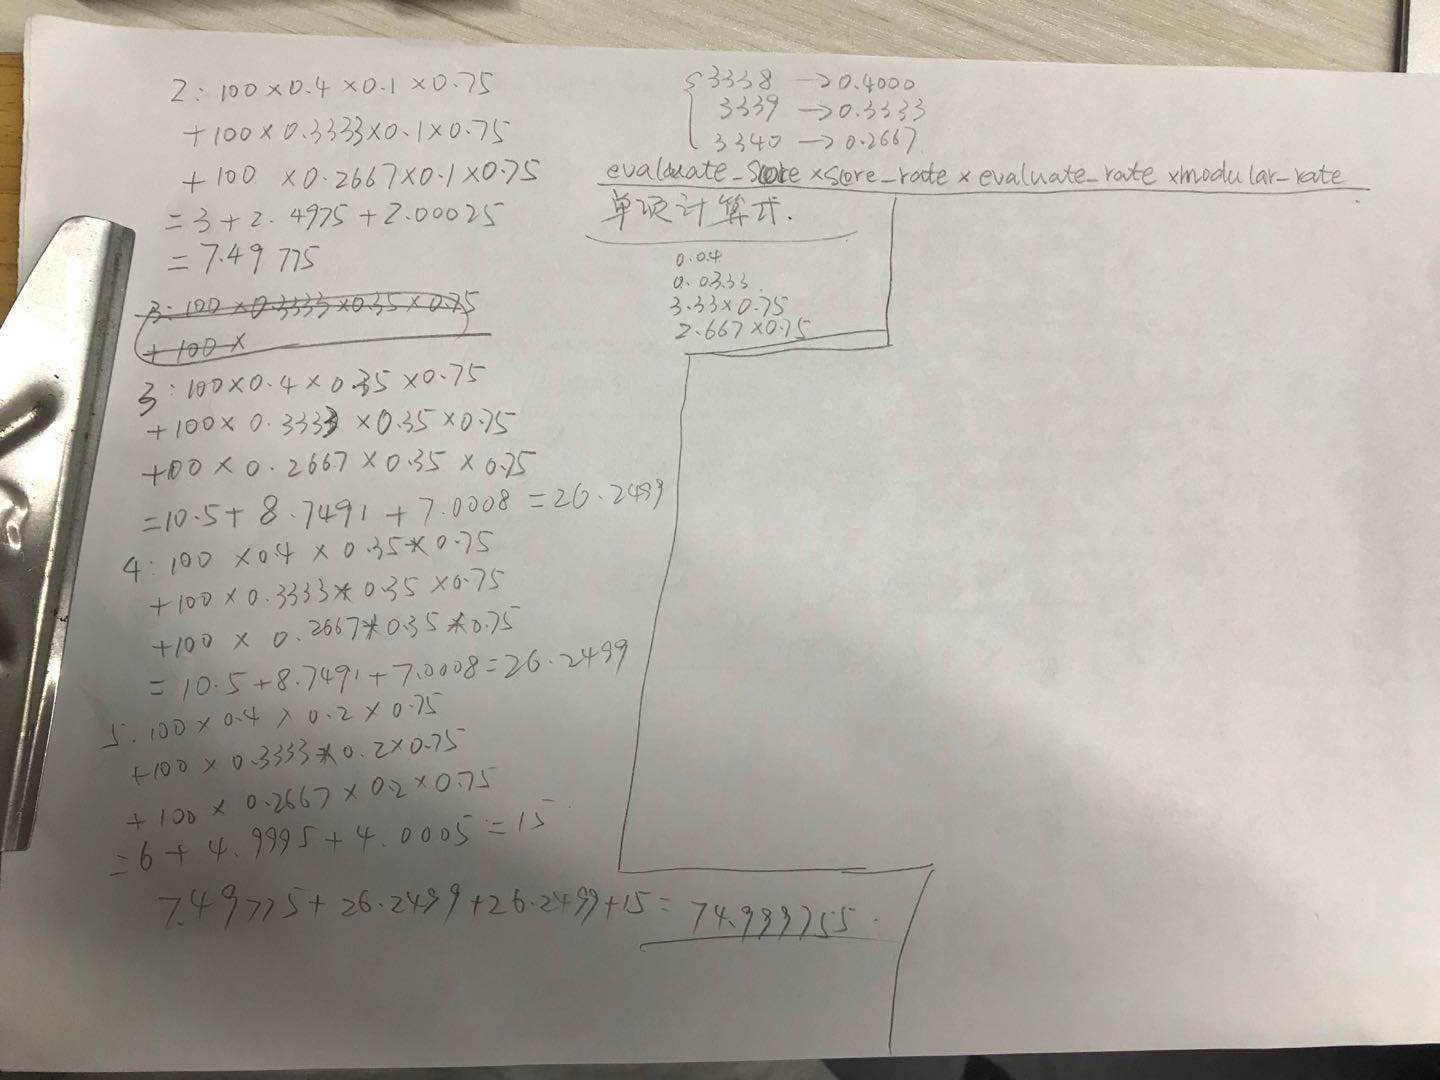 2: 100×0.4×0.1×0.75
+100×0.3333×0.1×0.75
+100 ×0.2667×0.1×0.75
=3+2.4975+2.00025
=7.49775
3: 100×0.3333×0.35×0.75
+100×
3:100×0.4×0.35×0.75
+100×0.3333×0.35×0.75
+100×0.2667×0.35×0.75
=10.5+8.7491+7.0008=26.2499
4:100×0.4×0.35×0.75
+100×0.3333×0.35×0.75
+100×0.2667×0.35×0.75
=10.5+8.7491+7.0008=26.2499
5.100×0.4×0.2×0.75
+100×0.3333×0.2×0.75
+100×0.2667×0.2×0.75
=6+4.9995+4.0005=15
7.49775+26.2499+26.2499+15=74.999755.
3338→0.4000
3339→0.3333
3340→0.2667
evaluate_score×score_rate×evaluate_rate×modular_rate
单项计算式.
0.04
0.0333.
3.33×0.75
2.667×0.75